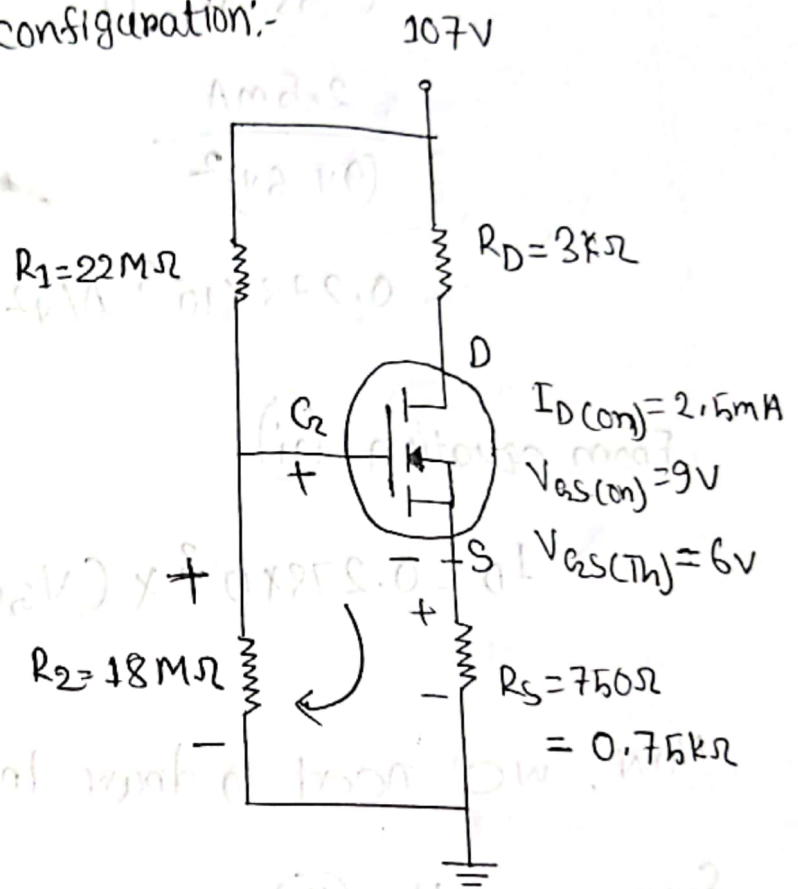 configuration:-
107V
R1=22MΩ
RD=3kΩ
D
G
+
ID(on)=2.5mA
VGS(on)=9V
VGS(Th)=6V
- S
+
+
R2=18MΩ
-
-
RS=750Ω
= 0.75kΩ